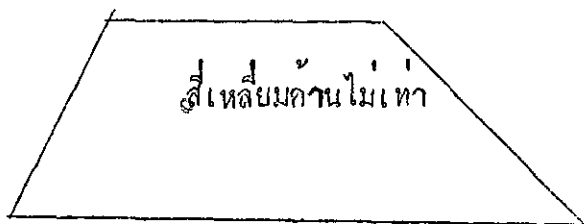 สี่เหลี่ยมด้านไม่เท่า